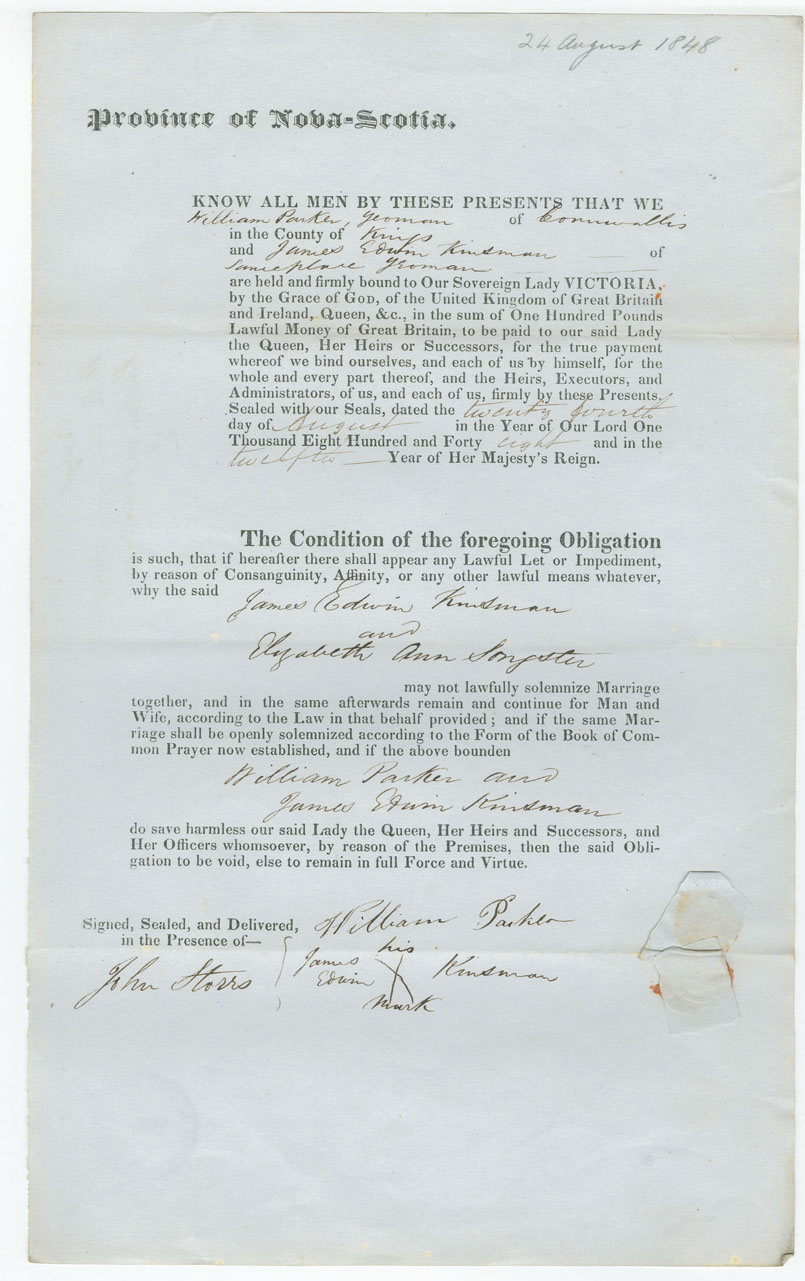 24 August 1848
Province of Nova-Scotia.
KNOW ALL MEN BY THESE PRESENTS THAT WE
William Parker, Yeoman of Cornwallis
in the County of Kings
and James Edwin Kinsman of
same place Yeoman
are held and firmly bound to Our Sovereign Lady VICTORIA,
by the Grace of GOD, of the United Kingdom of Great Britain
and Ireland, Queen, &c., in the sum of One Hundred Pounds
Lawful Money of Great Britain, to be paid to our said Lady
the Queen, Her Heirs or Successors, for the true payment
whereof we bind ourselves, and each of us by himself, for the
whole and every part thereof, and the Heirs, Executors, and
Administrators, of us, and each of us, firmly by these Presents.
Sealed with our Seals, dated the twenty fourth
day of August in the Year of Our Lord One
Thousand Eight Hundred and Forty eight and in the
twelfth Year of Her Majesty's Reign.
The Condition of the foregoing Obligation
is such, that if hereafter there shall appear any Lawful Let or Impediment,
by reason of Consanguinity, Affinity, or any other lawful means whatever,
why the said
James Edwin Kinsman
and
Elizabeth Ann Songster
may not lawfully solemnize Marriage
together, and in the same afterwards remain and continue for Man and
Wife, according to the Law in that behalf provided; and if the same Mar-
riage shall be openly solemnized according to the Form of the Book of Com-
mon Prayer now established, and if the above bounden
William Parker and
James Edwin Kinsman
do save harmless our said Lady the Queen, Her Heirs and Successors, and
Her Officers whomsoever, by reason of the Premises, then the said Obli-
gation to be void, else to remain in full Force and Virtue.
Signed, Sealed, and Delivered,
in the Presence of—
John Storrs
William Parker
James his Kinsman
Edwin X
mark